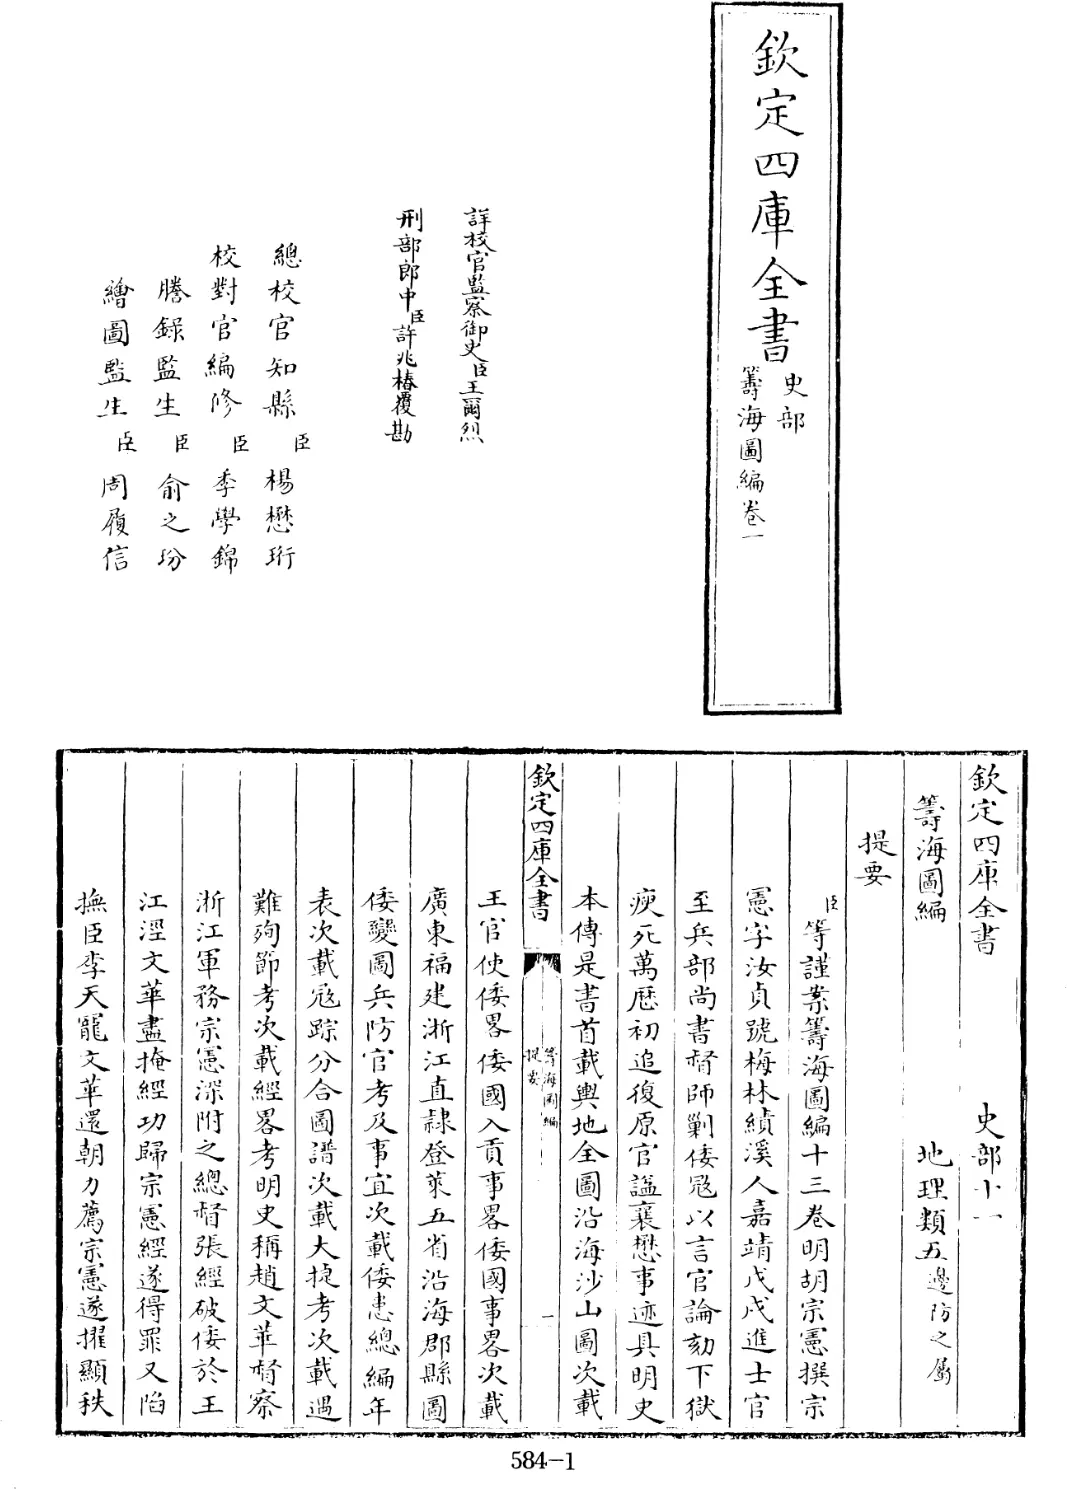 欽定四庫全書
史部
籌海圖編卷一
詳校官監察御史臣王爾烈
刑部郎中臣許兆椿覆勘
總校官知縣臣楊懋珩
校對官編修臣季學錦
謄錄監生臣俞之玢
繪圖監生臣周履信
欽定四庫全書 史部十一
籌海圖編 地理類五邊防之屬
提要
臣等謹案籌海圖編十三卷明胡宗憲撰宗
憲字汝貞號梅林績溪人嘉靖戊戌進士官
至兵部尚書督師剿倭寇以言官論劾下獄
瘐死萬厯初追復原官諡襄懋事迹具明史
本傳是書首載輿地全圖沿海沙山圖次載
欽定四庫全書
籌海圖編
提要
一
王官使倭畧倭國入貢事畧倭國事畧次載
廣東福建浙江直隷登萊五省沿海郡縣圖
倭變圖兵防官考及事宜次載倭患總編年
表次載寇踪分合圖譜次載大捷考次載遇
難殉節考次載經畧考明史稱趙文華督察
浙江軍務宗憲深附之總督張經破倭於王
江涇文華盡掩經功歸宗憲經遂得罪又陷
撫臣李天寵文華還朝力薦宗憲遂擢顯秩
584-1